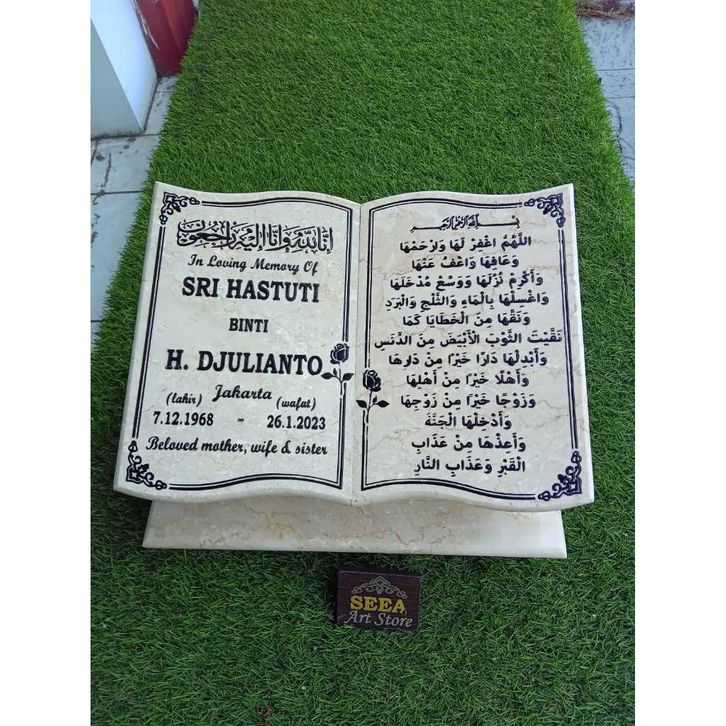 إنا لله وإنا إليه راجعون
In Loving Memory Of
SRI HASTUTI
BINTI
H. DJULIANTO
Jakarta
(lahir) (wafat)
7.12.1968 - 26.1.2023
Beloved mother, wife & sister
بسم الله الرحمن الرحيم
اللَّهُمَّ اغْفِرْ لَهَا وَارْحَمْهَا
وَعَافِهَا وَاعْفُ عَنْهَا
وَأَكْرِمْ نُزُلَهَا وَوَسِّعْ مُدْخَلَهَا
وَاغْسِلْهَا بِالْمَاءِ وَالثَّلْجِ وَالْبَرَدِ
وَنَقِّهَا مِنَ الْخَطَايَا كَمَا
نَقَّيْتَ الثَّوْبَ الْأَبْيَضَ مِنَ الدَّنَسِ
وَأَبْدِلْهَا دَارًا خَيْرًا مِنْ دَارِهَا
وَأَهْلًا خَيْرًا مِنْ أَهْلِهَا
وَزَوْجًا خَيْرًا مِنْ زَوْجِهَا
وَأَدْخِلْهَا الْجَنَّةَ
وَأَعِذْهَا مِنْ عَذَابِ
الْقَبْرِ وَعَذَابِ النَّارِ
SEEA
Art Store